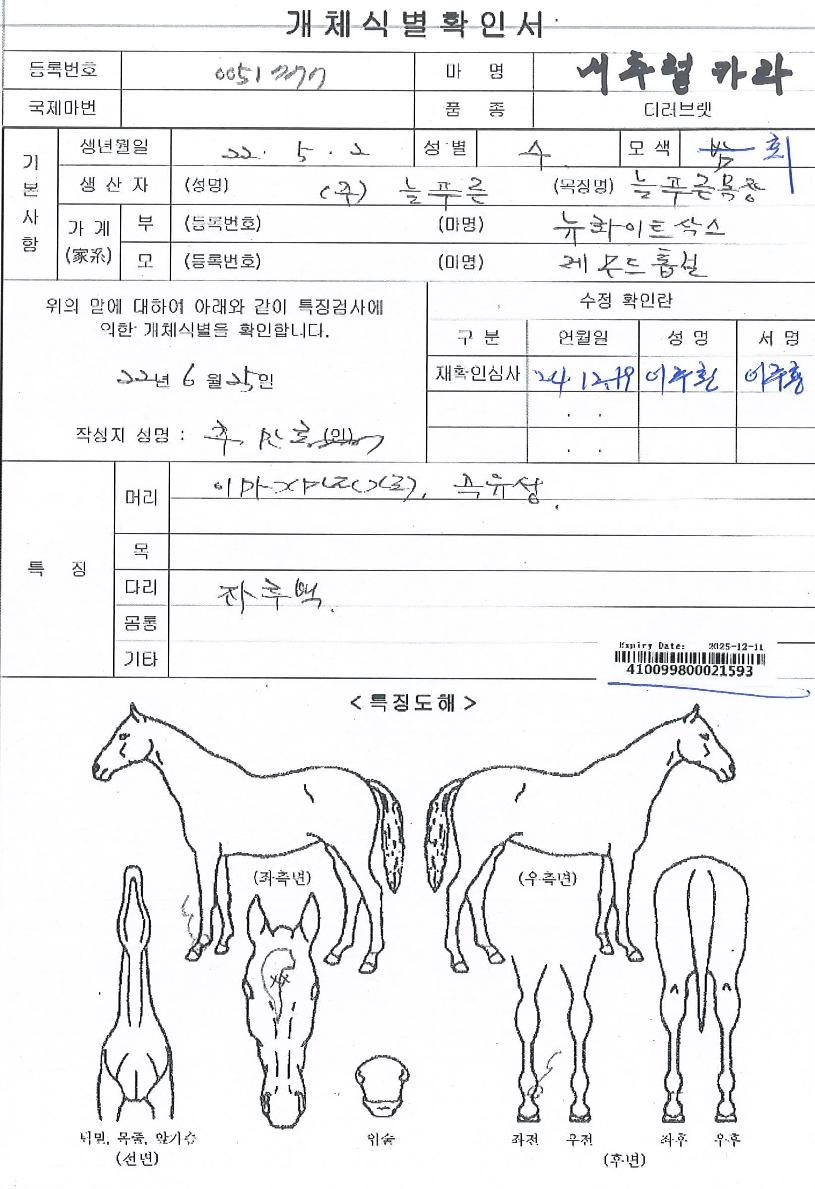 개체식별확인서
등록번호 0051777 마 명 내추럴카라
국제마번 품 종 더러브렛
기본사항
생년월일 22. 5. 2 성별 수 모색 밤 회
생산자 (성명) (주) 늘푸른 (목장명) 늘푸른목장
가계 (家系) 부 (등록번호) (마명) 뉴화이트삭스
모 (등록번호) (마명) 레몬드홉설
위의 말에 대하여 아래와 같이 특징검사에
의한 개체식별을 확인합니다.
22년 6월 25일
작성자 성명 : (인)
수정 확인란
구 분 연월일 성 명 서 명
재확인심사 24.12.19
. .
. .
특 징
머리
목
다리 좌후백.
몸통
기타
Expiry Date: 2025-12-11
410099800021593
< 특징도해 >
(좌측면) (우측면)
턱밑, 목줄, 앞가슴 입술 좌전 우전 좌후 우후
(전면) (후면)